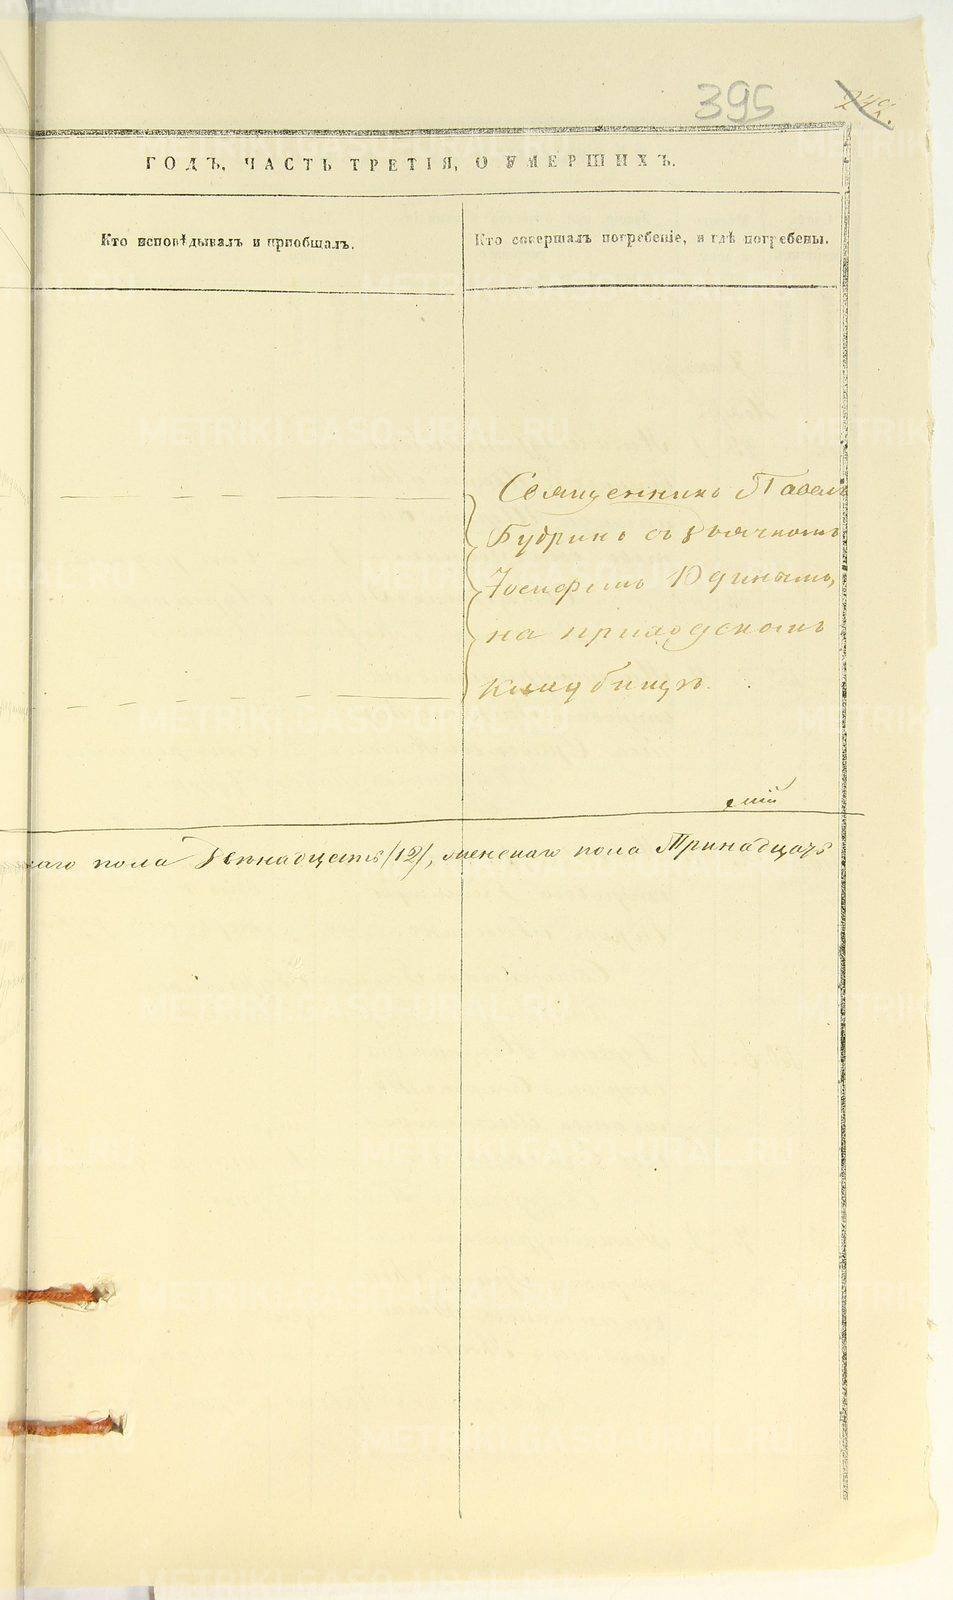 395
ГОДЪ, ЧАСТЬ ТРЕТІЯ, О УМЕРШИХЪ.
Кто исповѣдывалъ и пріобщалъ.
Кто совершалъ погребеніе, и гдѣ погребены.
Священникъ Павелъ
Будринъ съ дьячкомъ
Іосифомъ Юдинымъ,
на приходскомъ
кладбищѣ.
каго пола двѣнадцать /12/, женскаго пола Тринадцать
METRIKI.GASO-URAL.RU